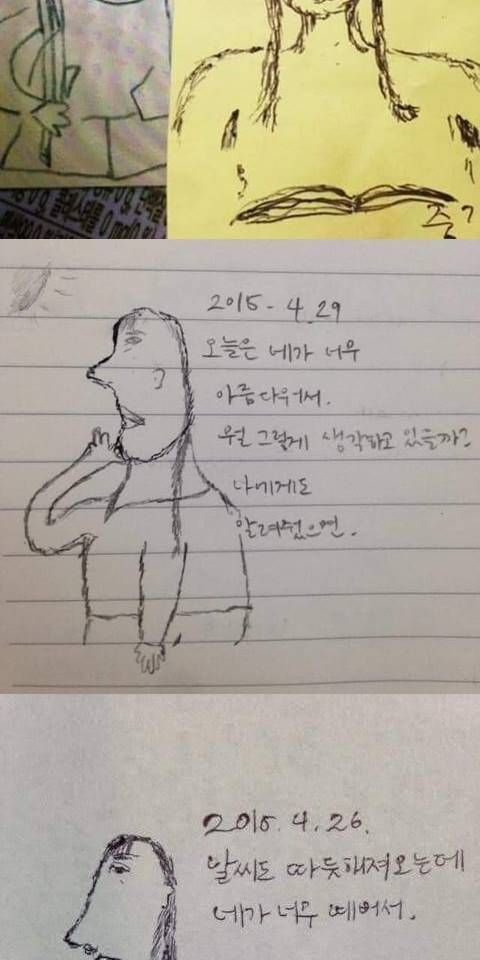 줄?
2015-4.29
오늘은 네가 너무
아름다워서.
뭘 그렇게 생각하고 있을까?
나에게도
알려줬으면.
2015.4.26.
날씨도 따듯해져오는데
네가 너무 떼어서.